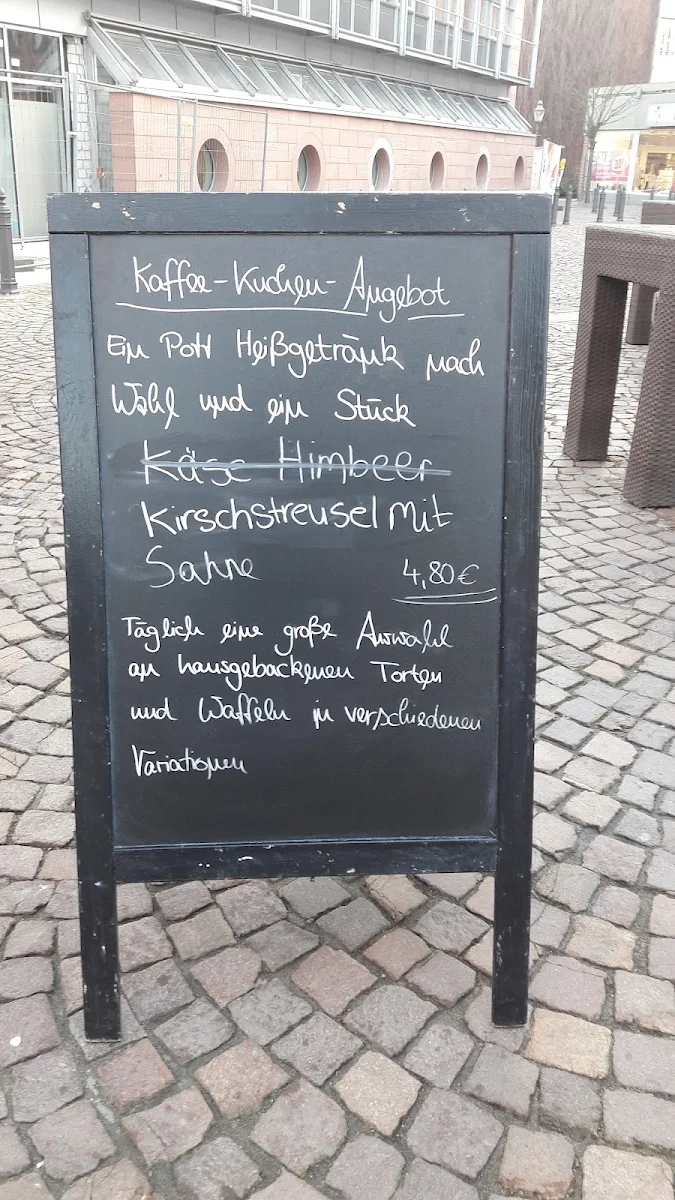 Kaffee-Kuchen-Angebot
Ein Pott Heißgetränk nach
Wahl und ein Stück
Käse Himbeer
Kirschstreusel Mit
Sahne 4,80€
Täglich eine große Auswahl
an hausgebackenen Torten
und Waffeln in verschiedenen
Variationen